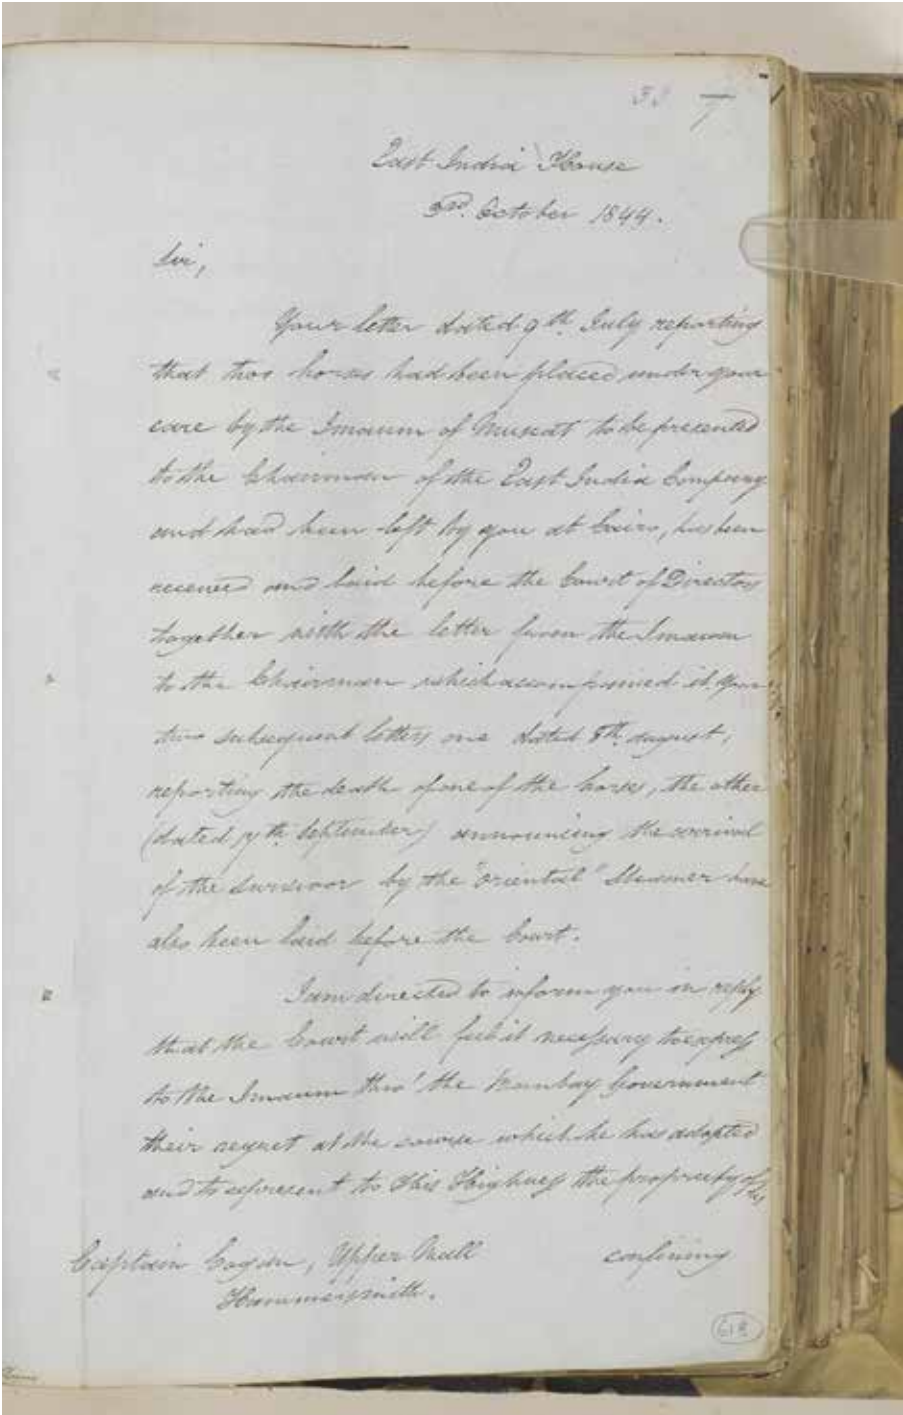 7
East India House
3rd. October 1844.
Sir,
Your letter dated 9th. July reporting
that two horses had been placed under your
care by the Imaum of Muscat to be presented
to the Chairman of the East India Company
and had been left by you at Cairo, has been
received and laid before the Court of Directors
together with the letter from the Imaum
to the Chairman which accompanied it. Your
two subsequent letters one dated 8th. August,
reporting the death of one of the horses, the other
(dated 17th. September) announcing the arrival
of the survivor by the "Oriental" Steamer have
also been laid before the Court.
I am directed to inform you in reply
that the Court will feel it necessary to express
to the Imaum thro' the Bombay Government
their regret at the course which he has adopted
and to represent to His Highness the propriety of his
confining
Captain Cogan, Upper Mall
Hammersmith.